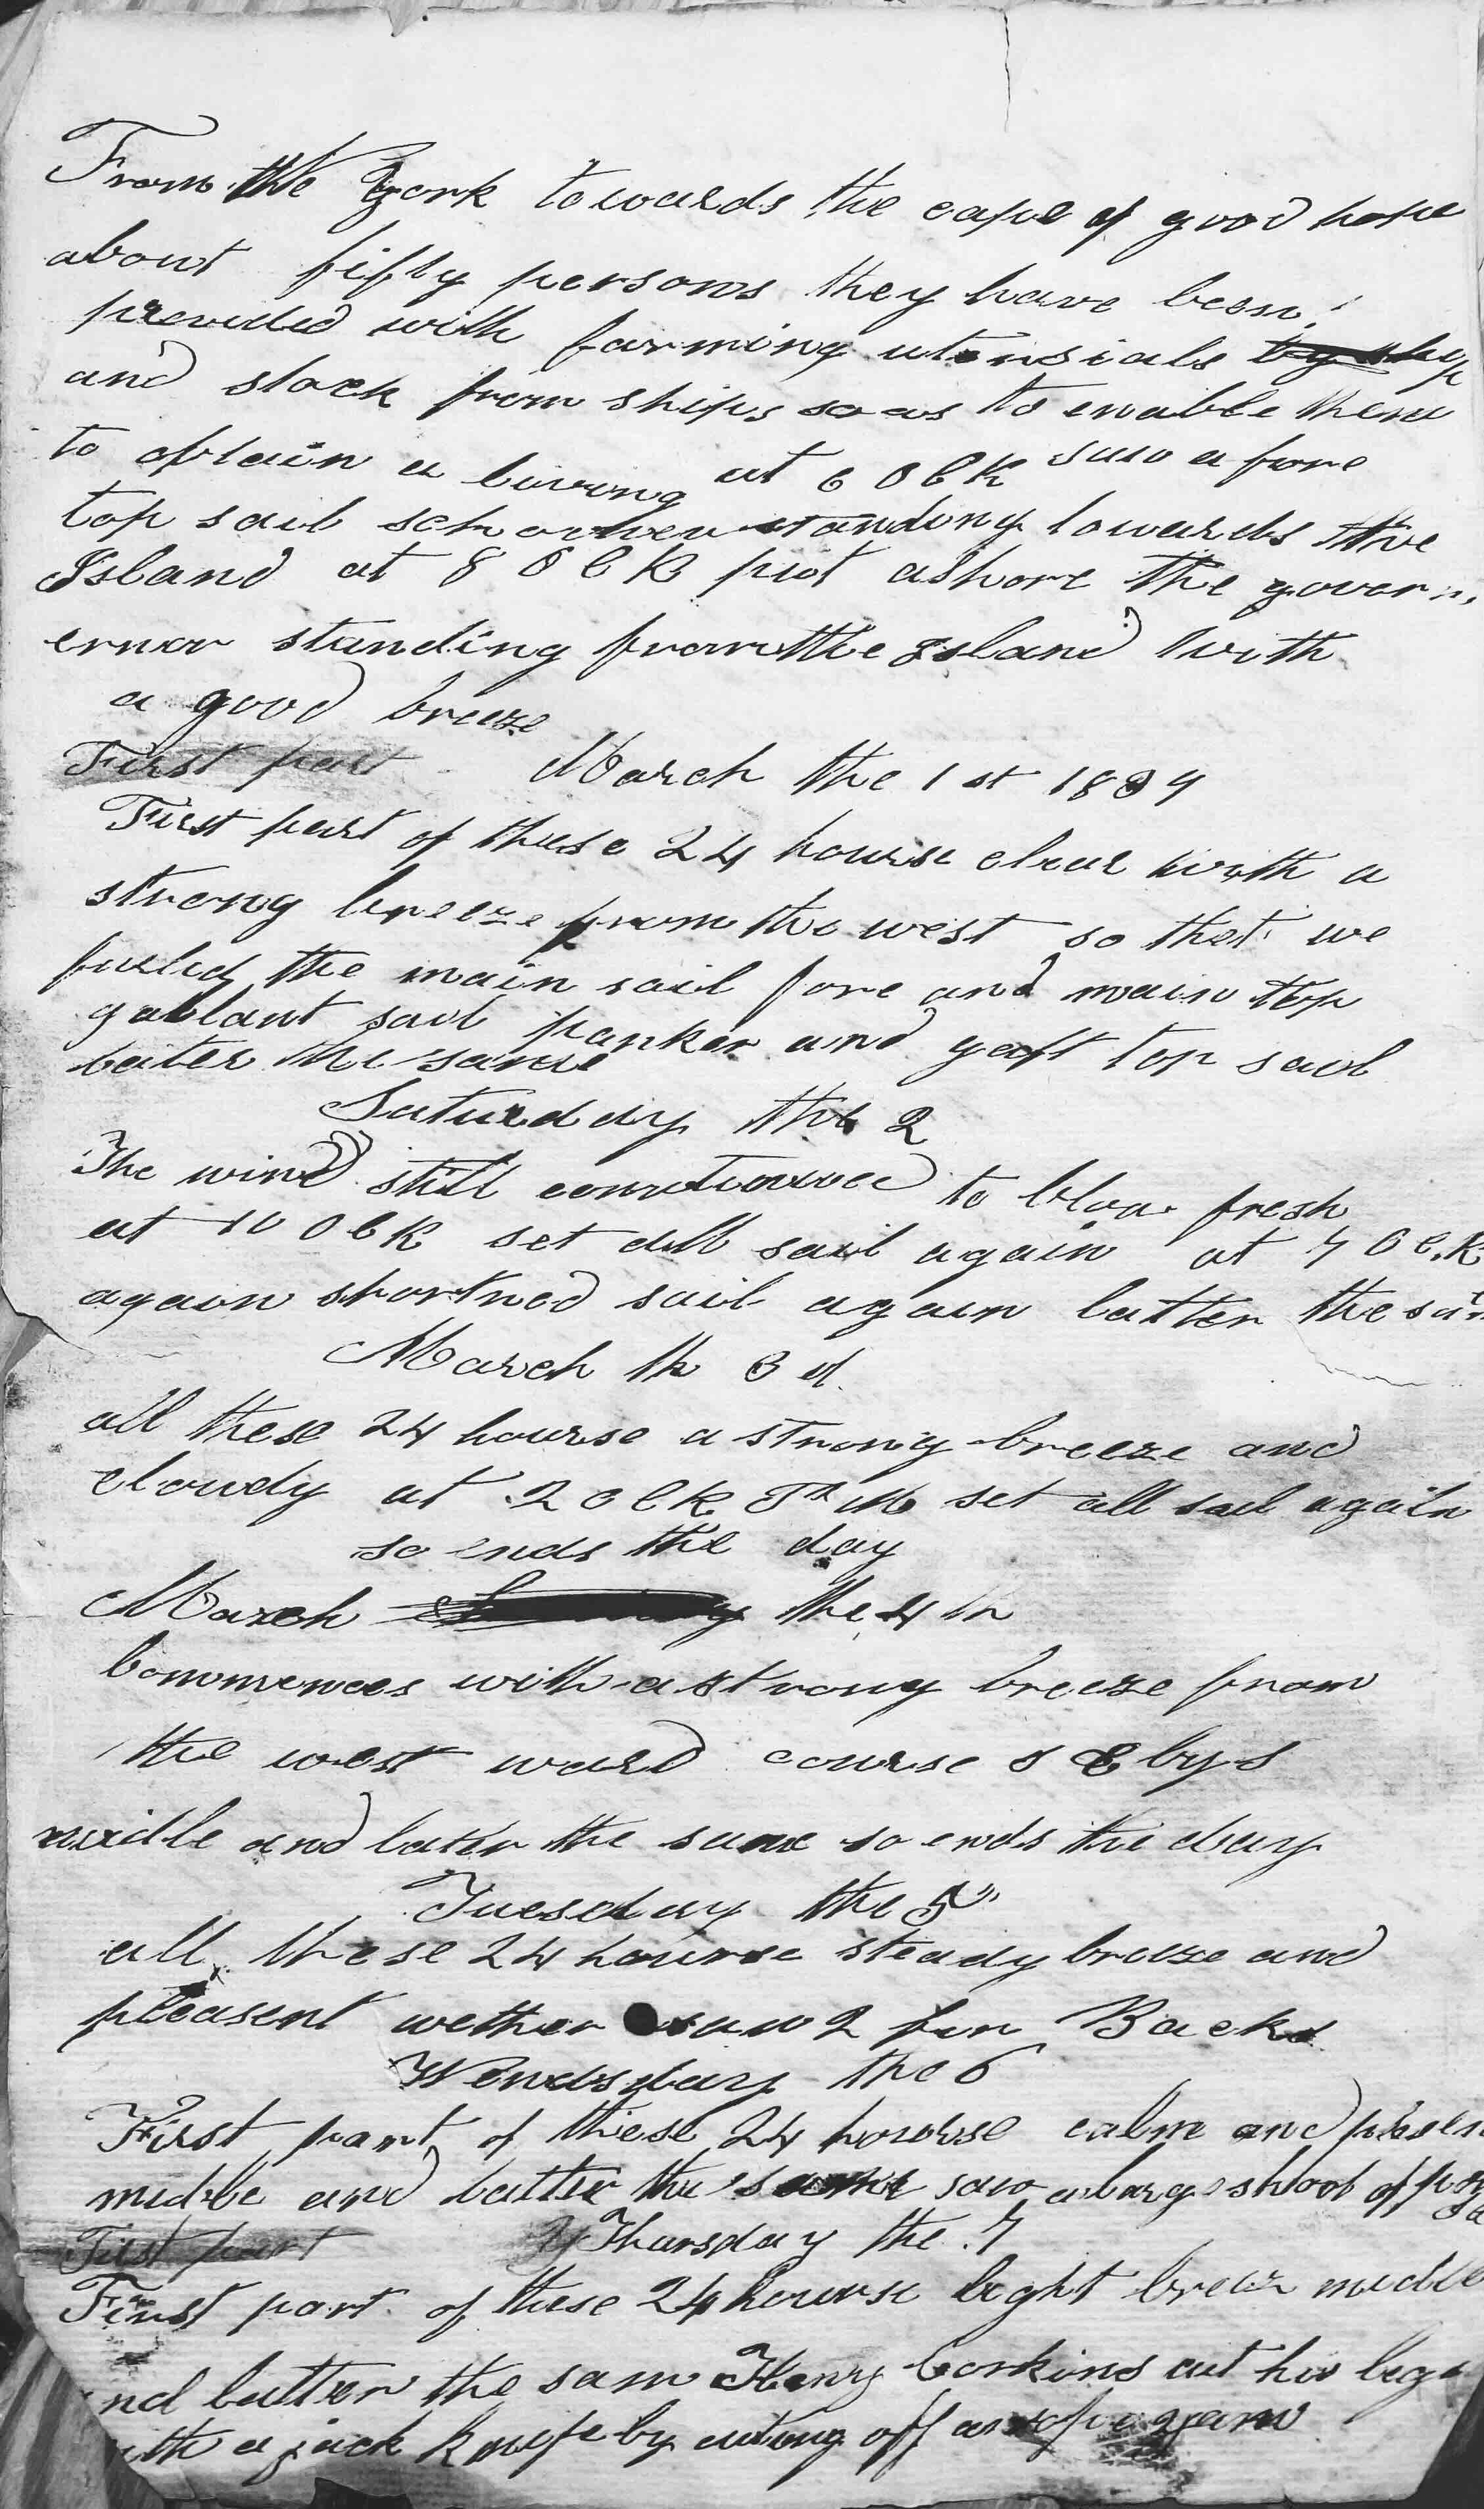 From the York towards the cape of good hope
about fifty persons they have been
provided with farming utinsials by ship
and stock from ships so as to enable them
to obtain a living at 6 OClK saw a fore
top sail schooner standing towards the
Island at 8 OClK put ashore the govern
ernor standing from the Island with
a good breeze
First part March the 1 st 1839
First part of these 24 hourse clear with a
strong breeze from the west so that we
furled the main sail fore and main top
gallant sail panker and gaft top sail
latter the same
Saturday the 2
The wind still continued to blow fresh
at 10 OClK set all sail again at 7 OClK
again shortned sail again latter the sam
March th 3 d
all these 24 hourse a strong breeze and
cloudy at 2 OClK P M set all sail again
so ends the day
March the 4 th
Commences with a strong breeze from
the west ward course S E by S
midle and latter the same so ends the day
Tuesday the 5
all these 24 hourse steady breeze and
pleasent wether saw 2 fin Backs
Wendsday the 6
First part of these 24 hourse calm and plesen
midle and latter the same saw a large shool of
First part Thursday the 7
First part of these 24 hourse light breeze midle
nd latter the same Henry Corkins cut his leg
ith a jack knife by cuting off a rope yarn